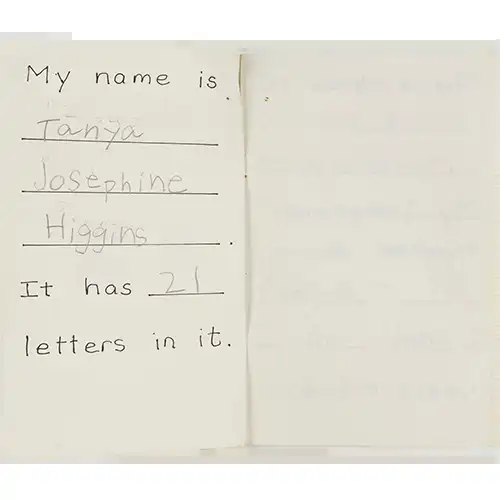 My name is
Tanya
Josephine
Higgins.
It has 21
letters in it.